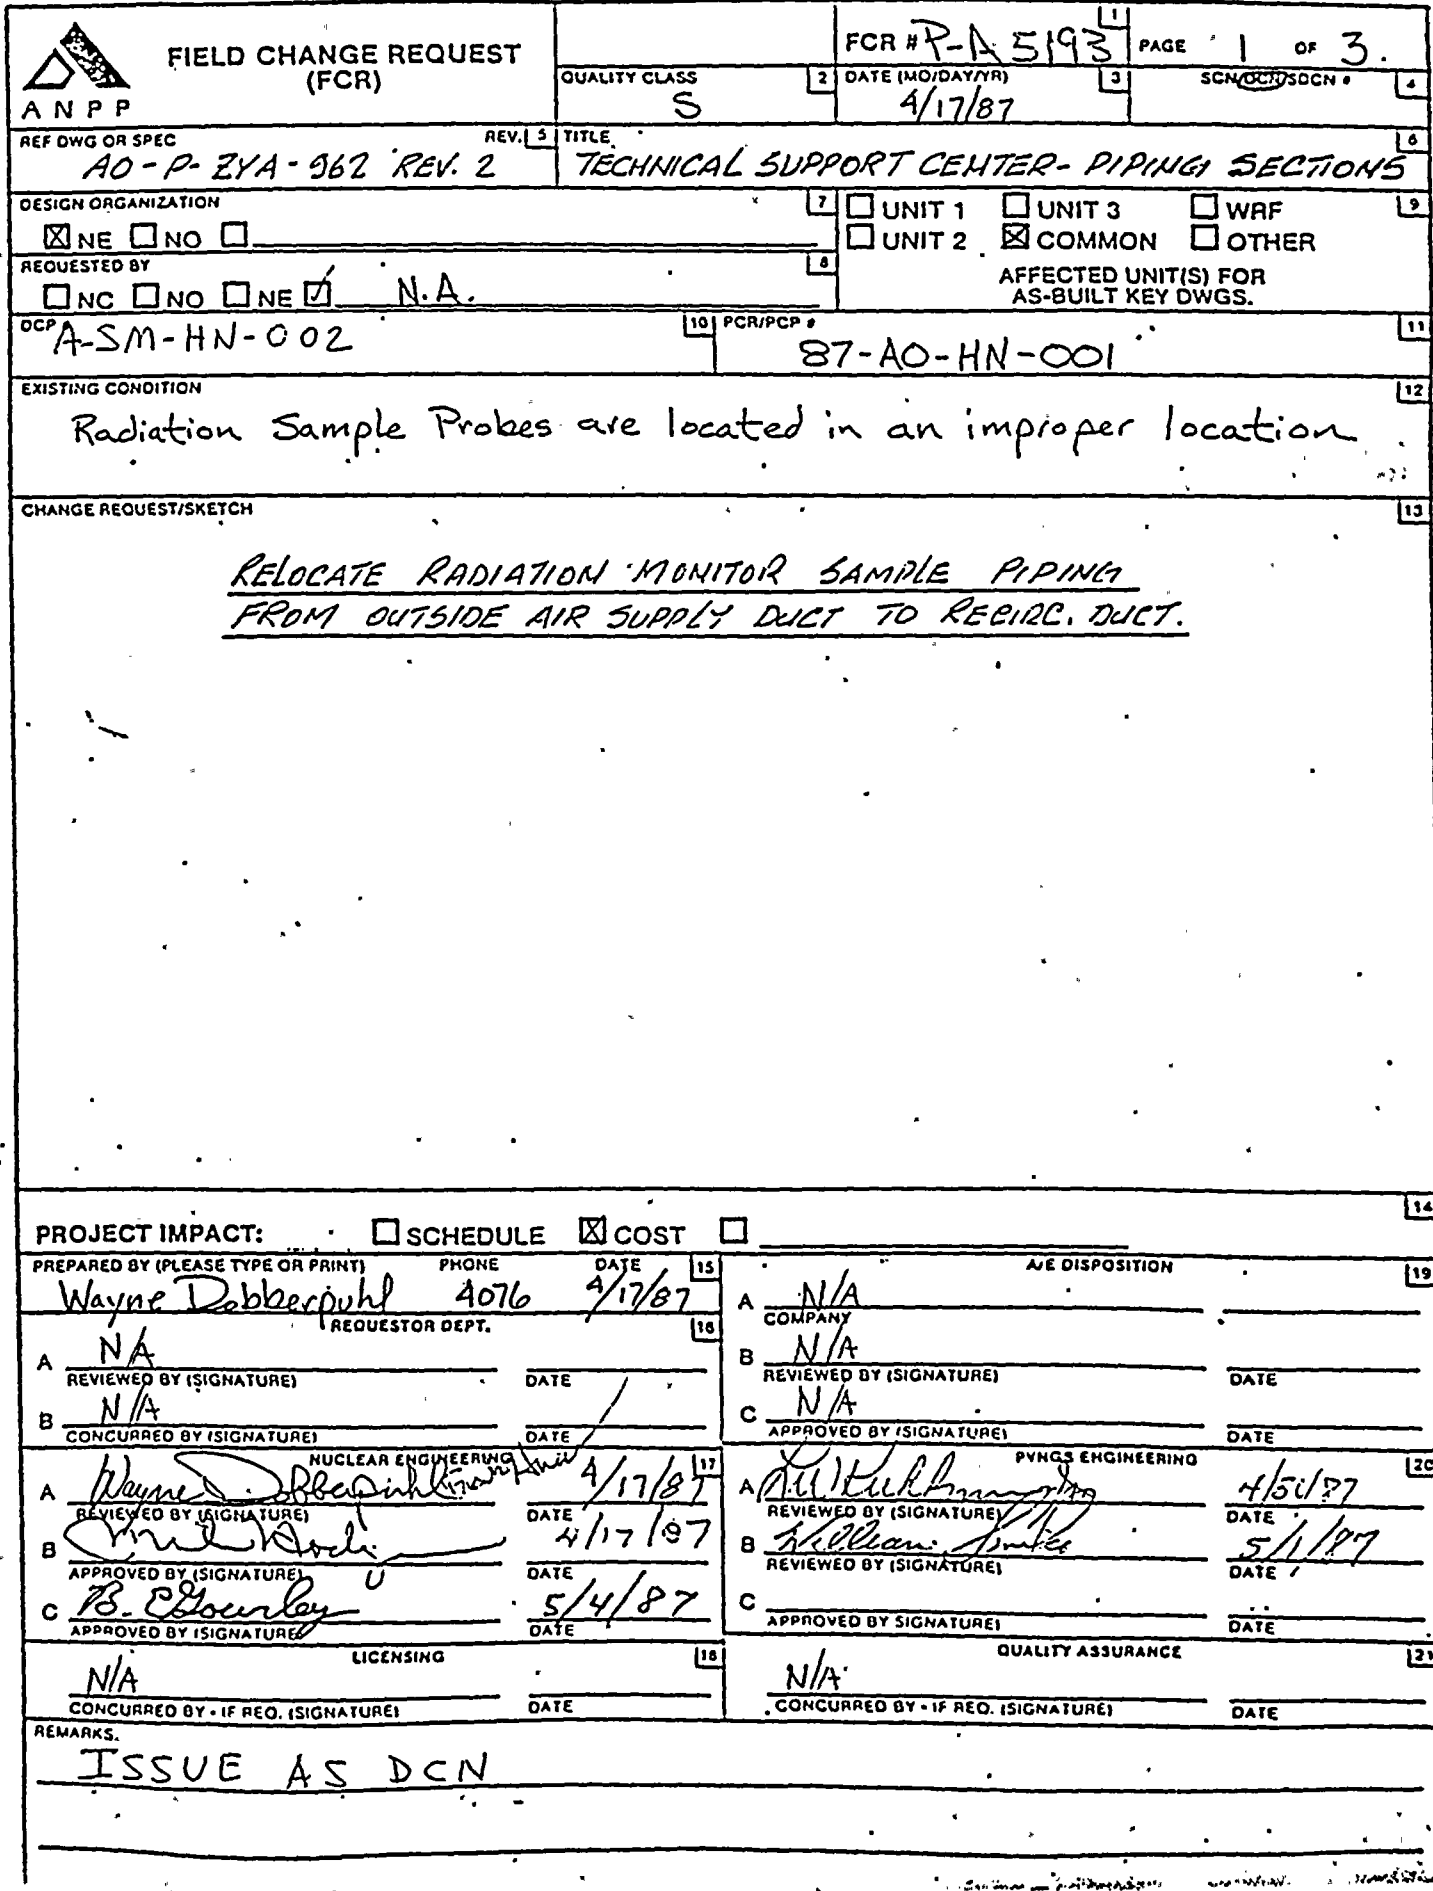 ANPP
FIELD CHANGE REQUEST
(FCR)
QUALITY CLASS 2
S
FCR # P-A 5193 1
PAGE 1 OF 3.
DATE (MO/DAY/YR) 3
4/17/87
SCN/DCN/SDCN # 4
REF DWG OR SPEC REV. 5
AO-P-ZYA-962 REV. 2
TITLE 6
TECHNICAL SUPPORT CENTER- PIPING SECTIONS
DESIGN ORGANIZATION 7
NE NO
REQUESTED BY 8
NC NO NE N.A.
UNIT 1 UNIT 3 WRF 9
UNIT 2 COMMON OTHER
AFFECTED UNIT(S) FOR
AS-BUILT KEY DWGS.
DCP A-SM-HN-002 10
PCR/PCP # 11
87-AO-HN-001
EXISTING CONDITION 12
Radiation Sample Probes are located in an improper location
CHANGE REQUEST/SKETCH 13
RELOCATE RADIATION MONITOR SAMPLE PIPING
FROM OUTSIDE AIR SUPPLY DUCT TO RECIRC. DUCT.
14
PROJECT IMPACT: SCHEDULE COST
PREPARED BY (PLEASE TYPE OR PRINT) PHONE DATE 15
Wayne Dobberpuhl 4076 4/17/87
REQUESTOR DEPT. 16
A N/A
REVIEWED BY (SIGNATURE) DATE
B N/A
CONCURRED BY (SIGNATURE) DATE
NUCLEAR ENGINEERING 17
A Wayne Dobberpuhl 4/17/87
REVIEWED BY (SIGNATURE) DATE
B 4/17/87
APPROVED BY (SIGNATURE) DATE
C B. E Gourley 5/4/87
APPROVED BY (SIGNATURE) DATE
LICENSING 18
N/A
CONCURRED BY - IF REQ. (SIGNATURE) DATE
A/E DISPOSITION 19
A N/A
COMPANY
B N/A
REVIEWED BY (SIGNATURE) DATE
C N/A
APPROVED BY (SIGNATURE) DATE
PVNGS ENGINEERING 20
A
REVIEWED BY (SIGNATURE) DATE
B William 5/1/87
REVIEWED BY (SIGNATURE) DATE
C
APPROVED BY SIGNATURE) DATE
QUALITY ASSURANCE 21
N/A
CONCURRED BY - IF REQ. (SIGNATURE) DATE
REMARKS.
ISSUE AS DCN